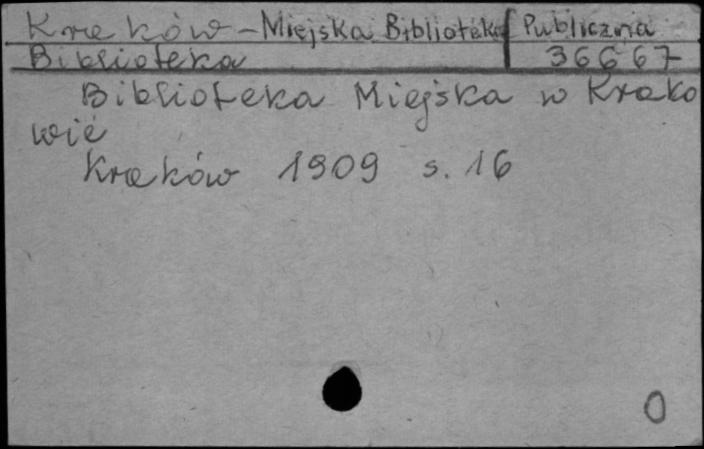 Kraków - Miejska Biblioteka Publiczna
Biblioteka 36667
Biblioteka Miejska w Krako
wie
Kraków 1909 s. 16
0